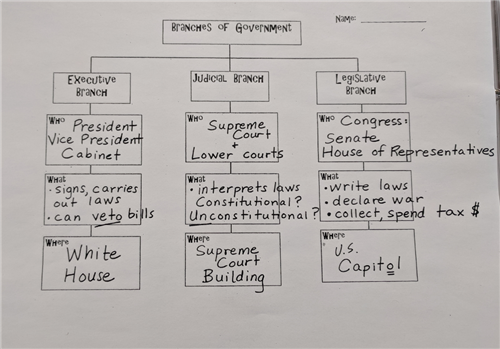 Name:
Branches of Government
Executive
Branch
Who President
Vice President
Cabinet
What
• signs, carries
out laws
• can veto bills
Where
White
House
Judicial Branch
Who Supreme
Court
+
Lower courts
What
• interprets laws
Constitutional?
Unconstitutional?
Where
Supreme
Court
Building
Legislative
Branch
Who Congress:
Senate
House of Representatives
What
• write laws
• declare war
• collect, spend tax $
Where
U.S.
Capitol